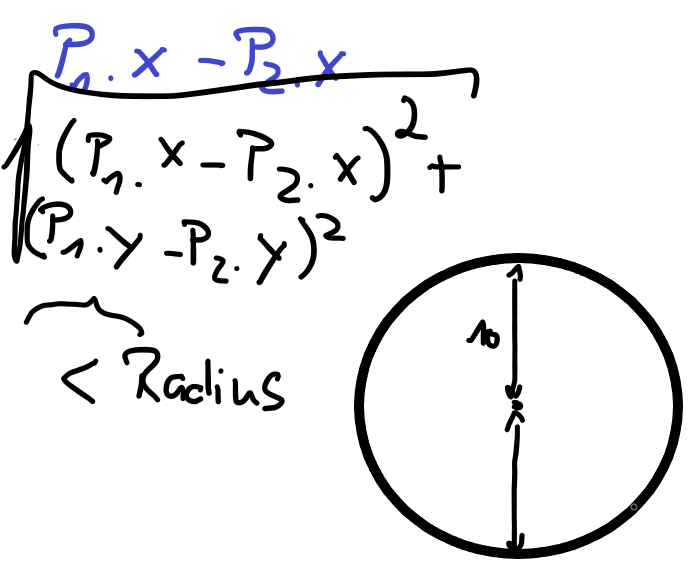 P₁.x - P₂.x
√(P₁.x - P₂.x)² +
(P₁.y - P₂.y)²
< Radius
10